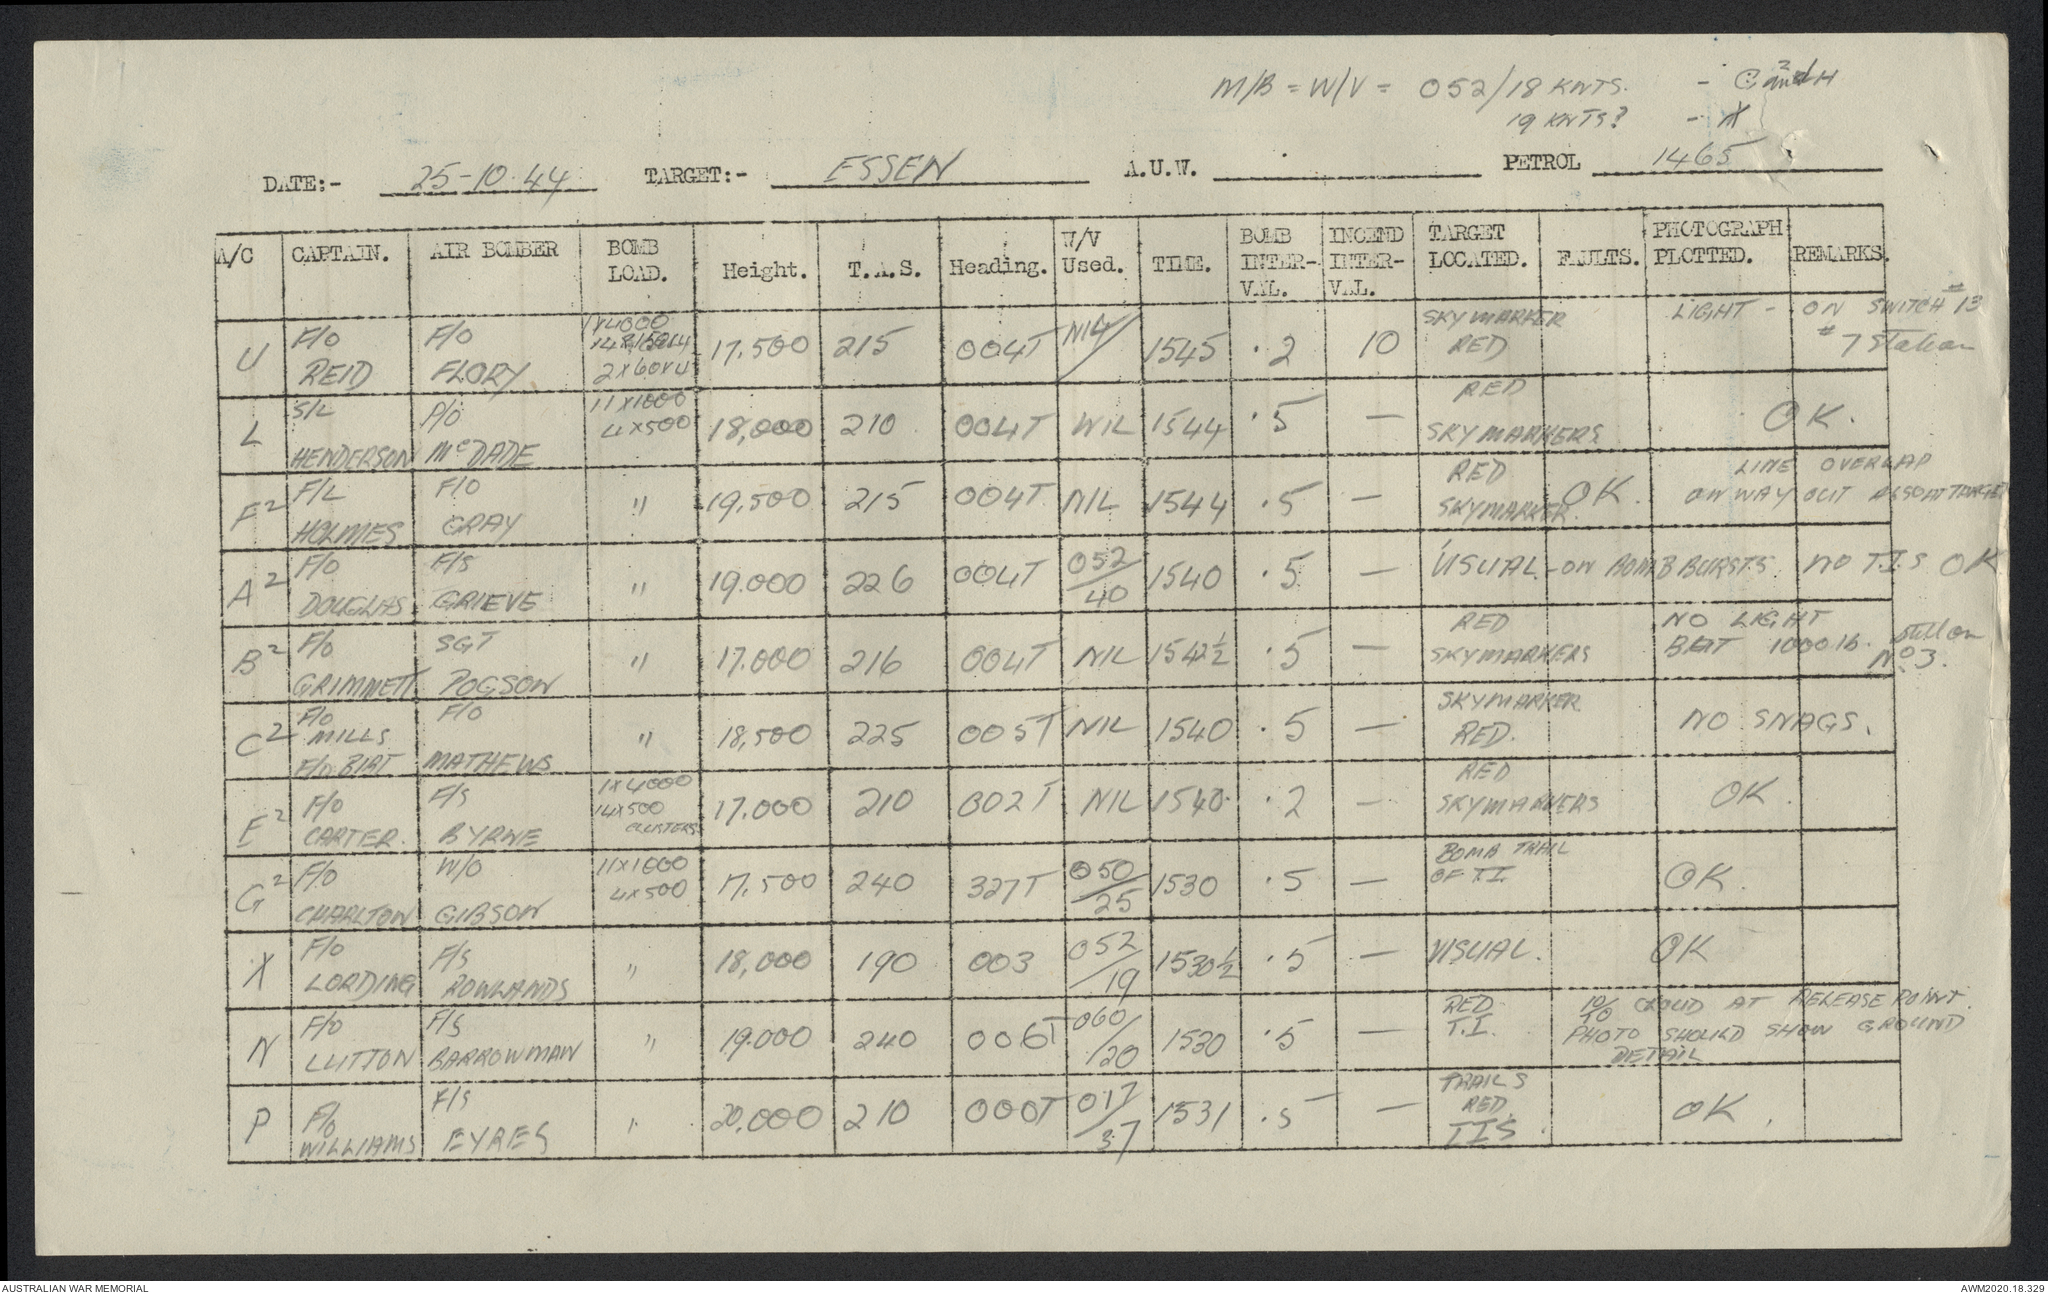 M/B = W/V = 052/18 KNTS. - C² and H
19 KNTS? - X
DATE:- 25-10-44 TARGET:- ESSEN A.U.W. PETROL 1465
A/C CAPTAIN. AIR BOMBER BOMB LOAD. Height. T.A.S. Heading. W/V Used. TIME. BOMB INTER-VAL. INCEND INTER-VAL. TARGET LOCATED. FAULTS. PHOTOGRAPH PLOTTED. REMARKS.
U F/O REID F/O FLORY 1X4000 2X60X4 17.500 215 004T NIL 1545 .2 10 SKYMARKER RED LIGHT - ON SWITCH #13 #7 Station
L S/L HENDERSON P/O McDADE 11X1000 4X500 18,000 210 004T NIL 1544 .5 — RED SKYMARKERS OK.
F² F/L HOLMES F/O GRAY " 19,500 215 004T NIL 1544 .5 — RED SKYMARKER OK. LINE OVERLAP ON WAY OUT ALSO AT TARGET
A² F/O DOUGLAS F/S GRIEVE " 19.000 226 004T 052/40 1540 .5 — VISUAL - ON BOMB BURSTS. NO T.I.S OK
B² F/O GRIMMETT SGT POGSON " 17.000 216 004T NIL 1542½ .5 — RED SKYMARKERS NO LIGHT BUT 1000 lb. Still on No 3.
C² F/O MILLS F/O BIRT F/O MATHEWS " 18,500 225 005T NIL 1540 .5 — SKYMARKER RED. NO SNAGS.
E² F/O CARTER. F/S BYRNE 1X4000 14X500 CLUSTERS 17.000 210 002T NIL 1540. .2 — RED SKYMARKERS OK.
G² F/O CHARLTON W/O GIBSON 11X1000 4X500 17,500 240 327T 050/25 1530 .5 — BOMB TRAIL OF T.I. OK.
X F/O LORDING F/S ROWLANDS " 18,000 190 003 052/19 1530½ .5 — VISUAL. OK
N F/O LUTTON F/S BARROWMAN " 19.000 240 006T 060/20 1530 .5 — RED T.I. 10/10 CLOUD AT RELEASE POINT. PHOTO SHOULD SHOW GROUND DETAIL
P F/O WILLIAMS F/S EYRES " 20,000 210 000T 017/37 1531 .5 — TRAILS RED. TIS. OK.
AUSTRALIAN WAR MEMORIAL AWM2020.18.329